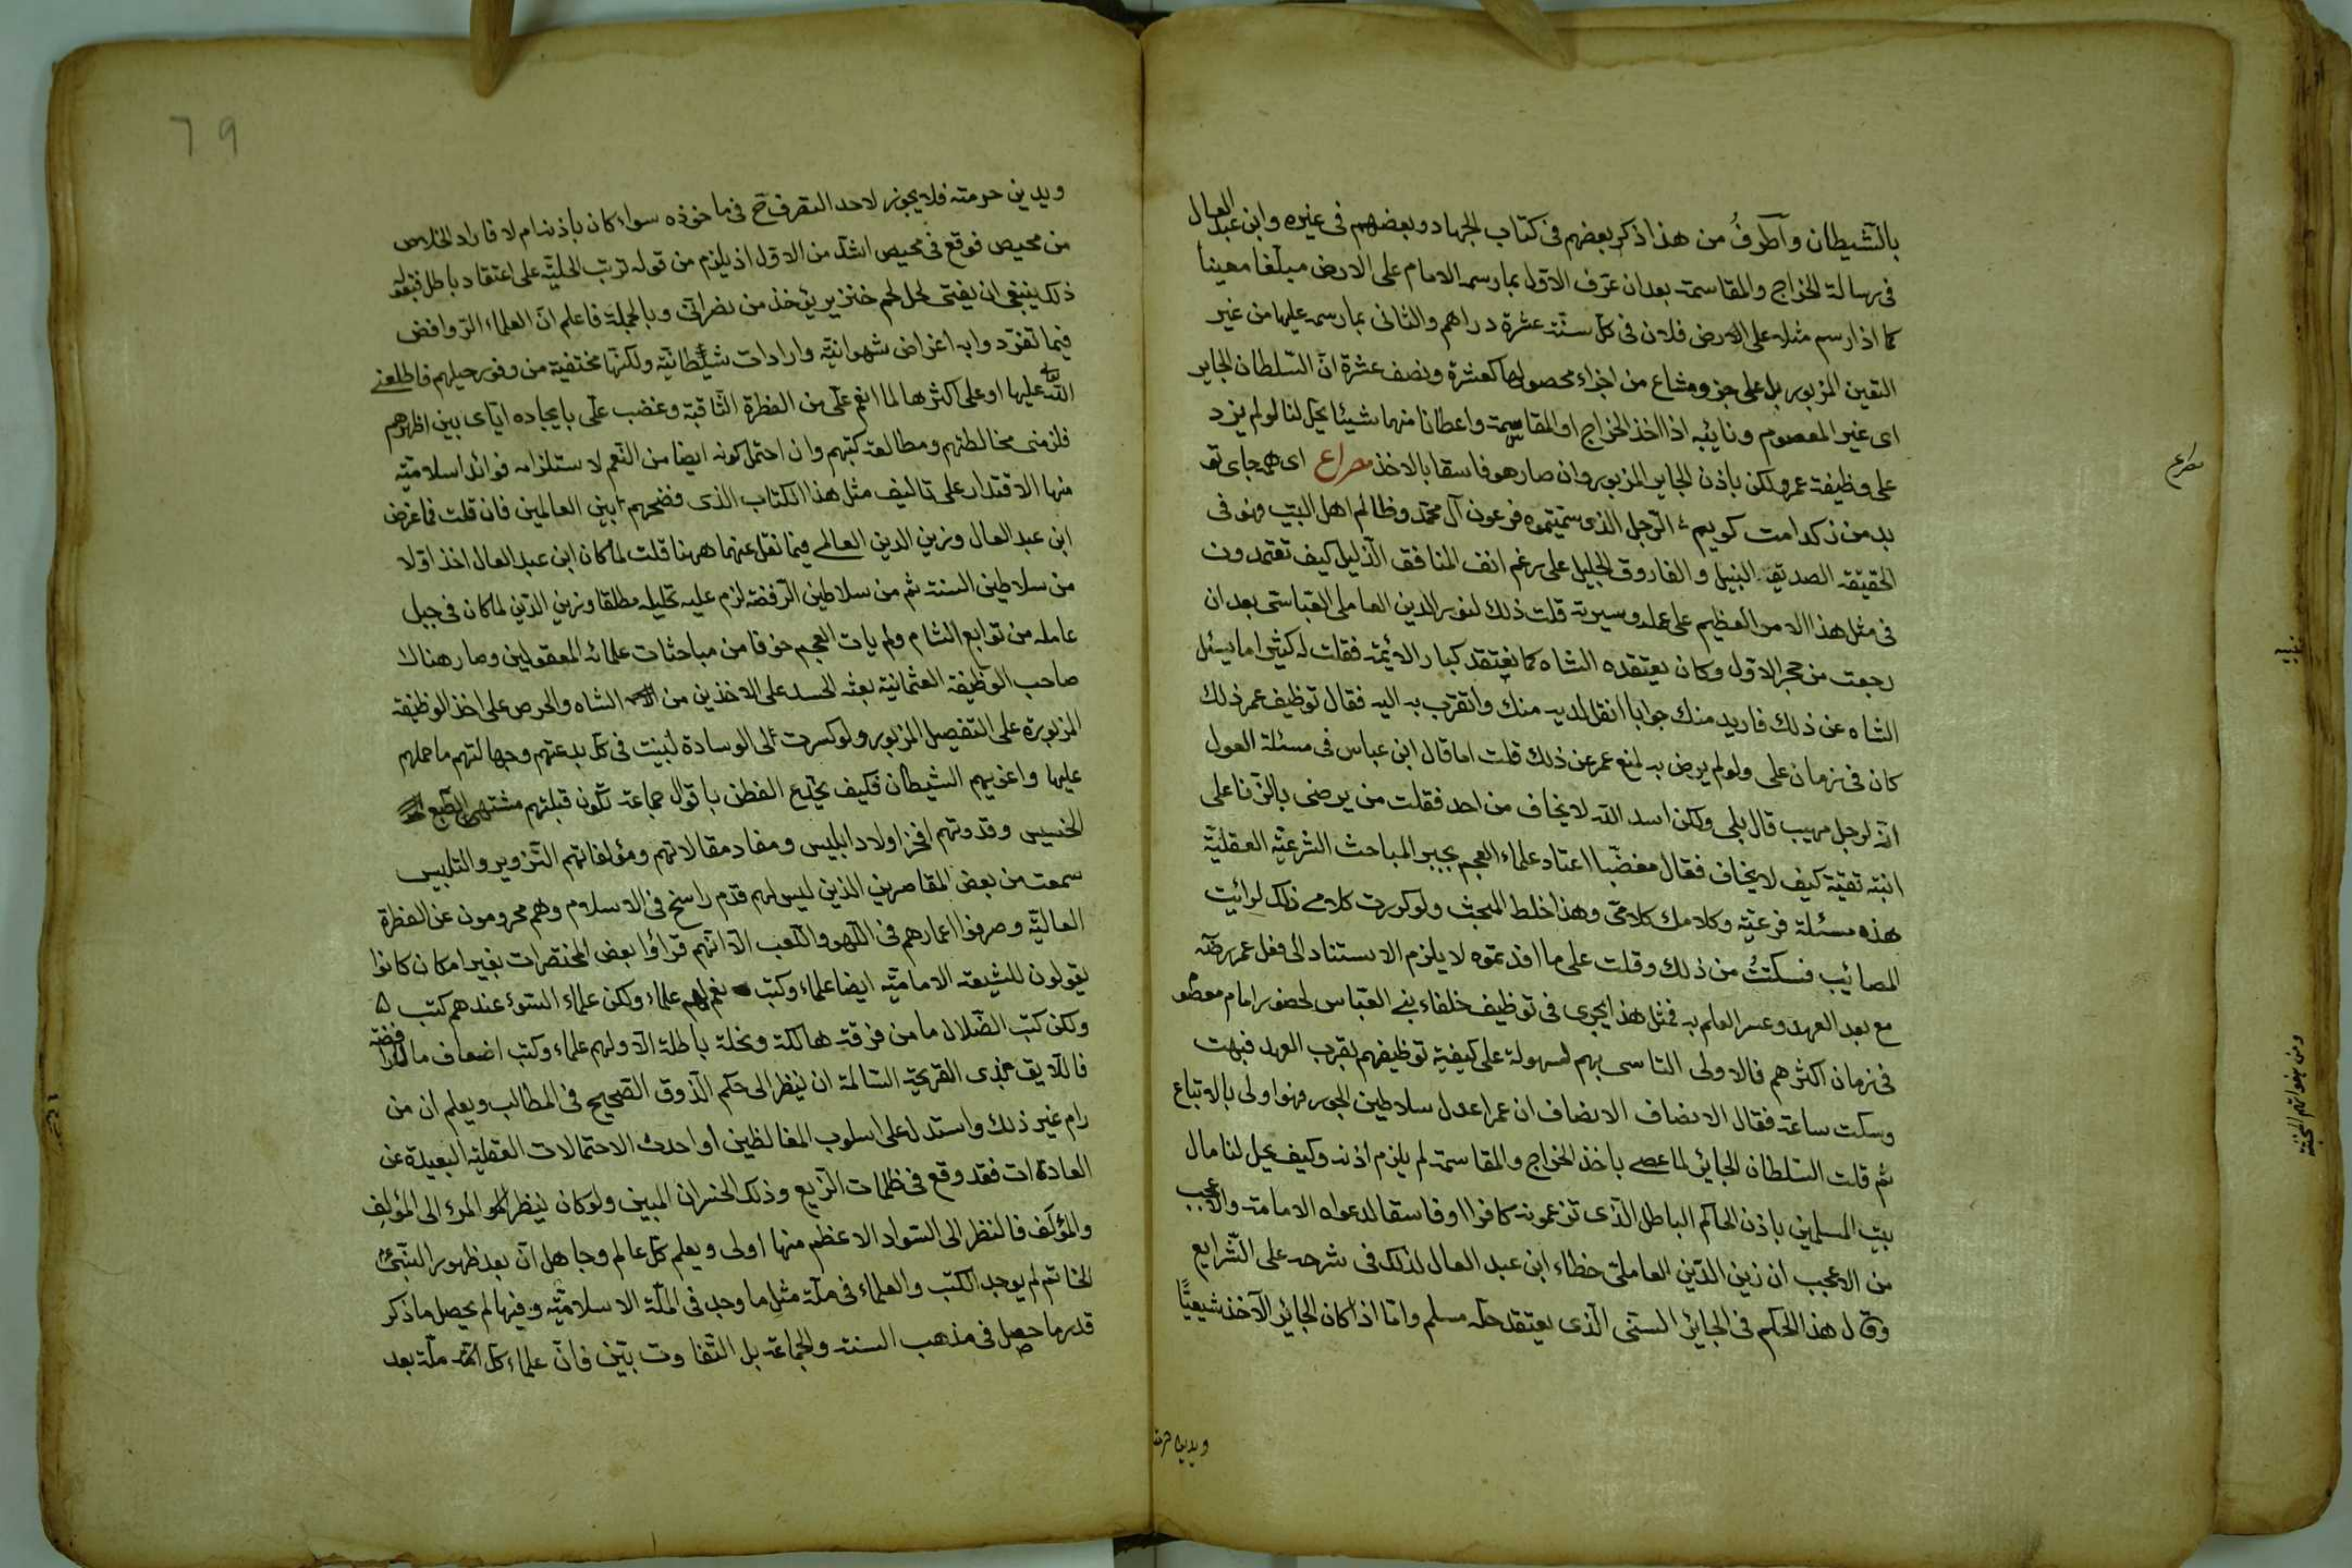 بالشيطان وآطرفُ من هذا ذكر بعضهم فى كتاب الجهاد وبعضهم فى غيره وابن عبد العال
فى رسالة الخراج والمقاسمة بعد ان عرّف الاوّل بما رسمه الامام على الارض مبلغا معينا
كما اذا رسم مثلا على الارض فلان فى كلّ سنة عشرة دراهم والثانى بما رسمه عليها من غير
التعين المزبور بل على جزو مشاع من اجزاء محصولها كعشرة ونصف عشرة انّ السّلطان الجاير
اى غير المعصوم ونائبه اذا اخذ الخراج او المقاسمة واعطانا منهما شيئا يحلّ لنا لو لم يزد
على وظيفة عمر ولكن باذن الجاير المزبور وان صار هو فاسقا بالاخذ مصراع اى همه جاى تو
بد من ز كدامت كويم الرّجل الذى سمّيتموه فرعون آل محمّد وظالم اهل البيت وهو فى
الحقيقة الصديق النبيل و الفاروق الجليل على رغم انف المنافق الذليل كيف تعتمدون
فى مثل هذا الامر العظيم على عمله وسيرته قلت ذلك لنور الدين العاملى العبّاسى بعد ان
رجعت من حجر الاوّل وكان يعتقده الشاه كما نعتقد كبار الائمّة فقلت له كثيرا ما يسئل
الشاه عن ذلك فاريد منك جوابا انقل لديه منك واتقرب به اليه فقال توظيف عمر ذلك
كان فى زمان على ولو لم يرض به لمنع عمر عن ذلك قلت اما قال ابن عباس فى مسئلة العول
انّه لرجل مهيب قال بلى ولكن اسد الله لا يخاف من احد فقلت من يرضى بالزنا على
ابنته تقيّة كيف لا يخاف فقال مغضبا اعتاد علماء العجم بجبر المباحث الشرعيّة العقليّة
هذه مسئلة فرعيّة وكلامك كلامىّ وهذا خلط المبحث ولو كررت كلامى ذلك لرائيت
المصائب فسكتُّ من ذلك وقلت على ما افدتموه لا يلزم الاستناد الى فعل عمر رضه
مع بعد العهد وعسر العلم به فمثل هذا يجرى فى توظيف خلفاء بنى العبّاس لحضور امام معصوم
فى زمان اكثرهم فالاولى التاسى بهم لسهولة على كيفية توظيفهم بقرب العهد فبهت
وسكت ساعة فقال الانصاف الانصاف ان عمر اعدل سلاطين الجور فهو اولى بالاتباع
ثم قلت السّلطان الجائر لما عصى باخذ الخراج والمقاسمة لم يلزم اذنه وكيف يحل لنا مال
بيت المسلمين باذن الحاكم الباطل الّذى تزعمونه كافرا او فاسقا لدعواه الامامة والاعجب
من الاعجب ان زين الدّين العاملىّ خطاء ابن عبد العال لذلك فى شرحه على الشّرايع
وقال هذا الحكم فى الجائر السنّى الّذى يعتقد حلّه مسلم وامّا اذا كان الجائر الآخذ شيعيًّا
مصراع
ويدين حرمته
ويدين حرمته فلا يجوز لاحد التصرف ح فى ماخوذه سواء كان باذنه ام لا فاراد الخلاص
من محيص فوقع فى محيص اشدّ من الاوّل اذ يلزم من قوله ترتّب الحليّة على اعتقاد باطل فبقوله
ذلك ينبغى ان يفتى لحلّ لحم خنزير يؤخذ من نصرانىّ وبالجملة فاعلم انّ العلماء الرّوافض
فيما تفرّدوا به اغراض شهوانيّة وارادات شيطانيّة ولكنّها مختفية من وفور حيلهم فاطلعنى
الله عليها او على اكثرها لما انعم علّى من الفطرة الثاقبة وغضب علّى بايجاده ايّاى بين اظهرهم
فلزمنى مخالطتهم ومطالعة كتبهم وان احتمل كونه ايضا من النعم لاستلزامه فوائد اسلاميّة
منها الاقتدار على تاليف مثل هذا الكتاب الذى فضحهم بين العالمين فان قلت فما غرض
ابن عبد العال وزين الدين العالمى فيما نقل عنهما ههنا قلت لما كان ابن عبد العال اخذ اوّلا
من سلاطين السنة ثم من سلاطين الرّفضة لزم عليه تحليله مطلقا وزين الدّين لما كان فى جبل
عامله من توابع الشام ولم يات العجم خوفا من مباحثات علمائه المعقولين وصار هناك
صاحب الوظيفة العثمانية بعثه الحسد على الاخذين من الشاه والحرص على اخذ الوظيفة
المزبورة على التفصيل المزبور ولو كسرت لى الوسادة لبيّنت فى كل بدعتهم وجهالتهم ما حملهم
عليها واغريهم الشيطان فكيف يختلع الفطن باقوال جماعة تكون قبلتهم مشتهى الطّبع
الخسيس وقدوتهم افخر اولاد ابليس ومفاد مقالاتهم ومؤلفاتهم التزوير والتلبيس
سمعت من بعض المقاصرين الذين ليس لهم قدم راسخ فى الاسلام وهم محرومون عن الفطرة
العاليّة وصرفوا اعمارهم فى اللّهو واللّعب الّا انّهم قراؤا بعض المختصرات بغير امكان كانوا
يقولون للشيعة الاماميّة ايضا علماء وكتب نعم لهم علماء ولكن علماء السّوء عندهم كتب
ولكن كتب الضّلال ما من فرقة هالكة ونحلة باطلة الّا ولهم علماء وكتب اضعاف ما للرافضة
فاللايق بذى القريحة السّالمة ان ينظر الى حكم الذّوق الصّحيح فى المطالب ويعلم ان من
رام غير ذلك واستدل على اسلوب المغالطين او احدث الاحتمالات العقليّة البعيدة عن
العادات فقد وقع فى ظلمات الزّيع وذلك الخسران المبين ولو كان ينظر المرء الى المؤلِف
والمؤلَف فالنظر الى السّواد الاعظم منها اولى ويعلم كلّ عالم وجاهل انّ بعد ظهور النّبىّ
الخاتم لم يوجد الكتب والعلماء فى ملّة مثل ما وجد فى الملّة الاسلاميّة وفيها لم يحصل ما ذكر
قدر ما حصل فى مذهب السنة والجماعة بل التفاوت بيّن فانّ علماء كلّ ملّة بعد
79